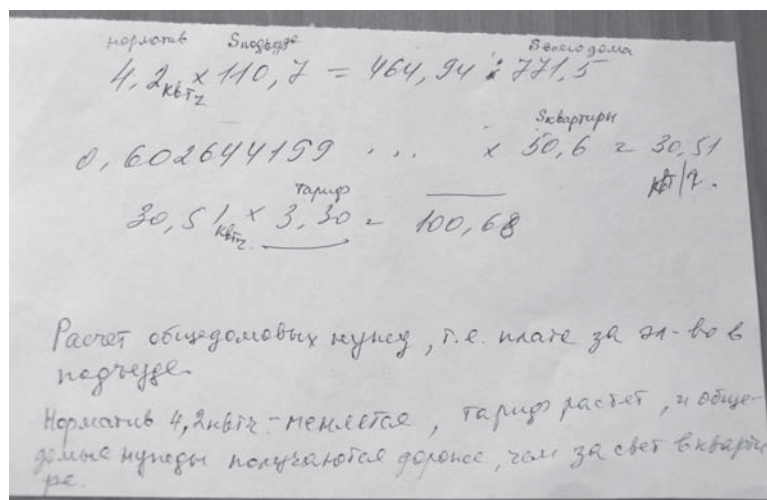 норматив Sподъезда Sвсего дома
4,2 квтч x 110,7 = 464,94 : 771,5
Sквартиры
0,602644199 ... x 50,6 = 30,51
квт/ч.
тариф
30,51 квтч. x 3,30 = 100,68
Расчет общедомовых нужд, т.е. плате за эл-во в
подъезде.
Норматив 4,2квтч - меняется, тариф растет, и обще-
домые нужды получаются дороже, чем за свет в кварти
ре.